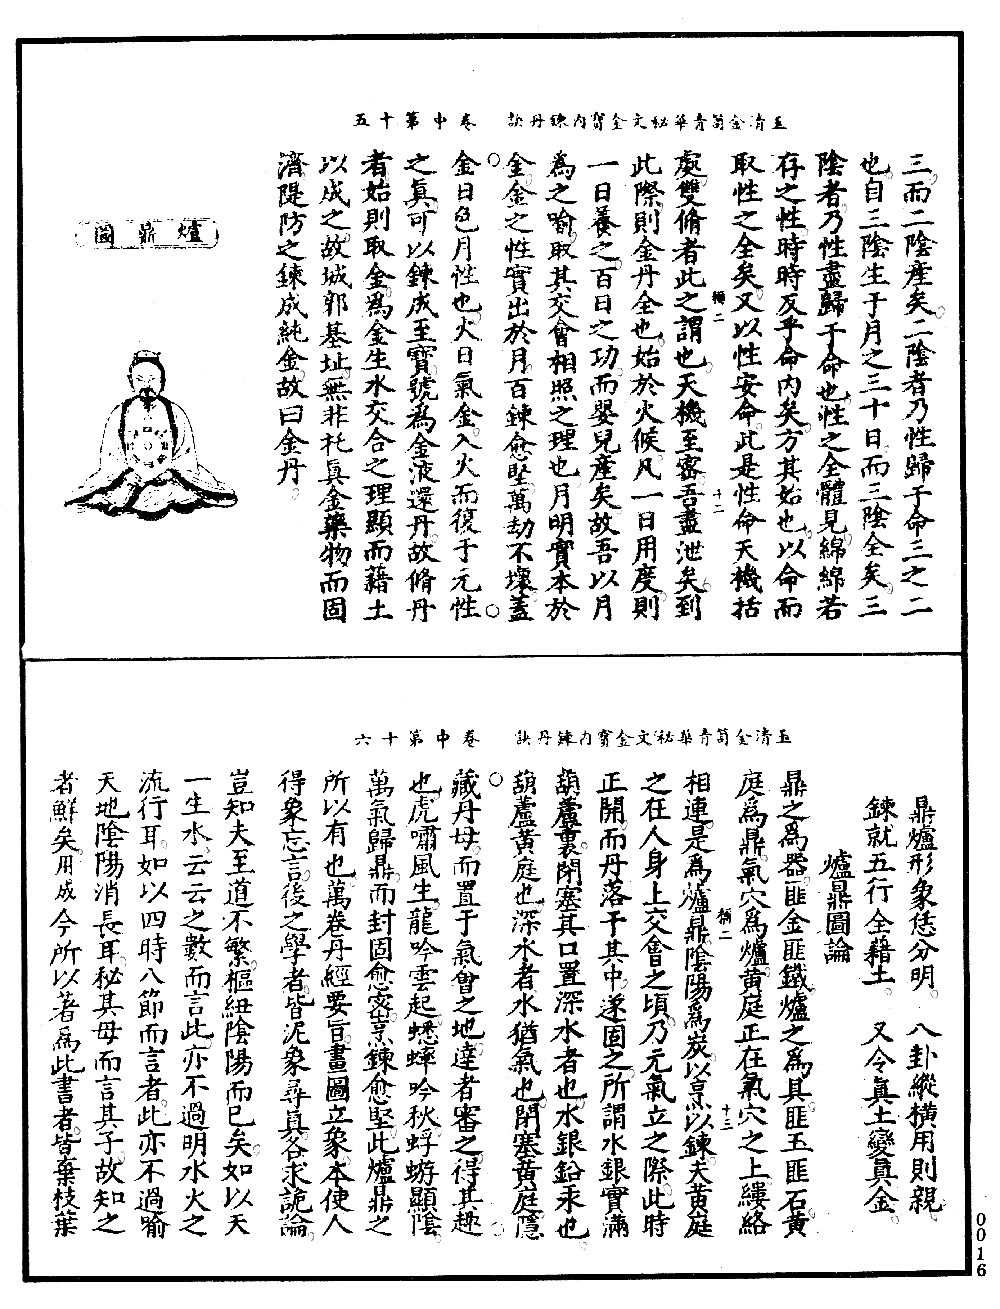 玉清金笥青華秘文金寶內鍊丹訣　卷中第十五
三而二陰產矣二陰者乃性歸于命三之二
也自三陰生于月之三十日而三陰全矣三
陰者乃性盡歸于命也性之全體見綿綿若
存之性時時反乎命內矣方其始也以命而
取性之全矣又以性安命此是性命天機括
處雙脩者此之謂也天機至密吾盡泄矣到
此際則金丹全也始於火候凡一日用度則
一日養之百日之功而嬰兒產矣故吾以月
為之喻取其交會相照之理也月明實本於
金金之性實出於月百鍊愈堅萬劫不壞蓋
○　○
金日色月性也火日氣金入火而復于元性
之真可以鍊成至寶號為金液還丹故脩丹
者始則取金為金生水交合之理顯而藉土
以成之故城郭基址無非托真金藥物而固
濟隄防之鍊成純金故曰金丹
稱二　十二
爐鼎圖
玉清金笥青華秘文金寶內鍊丹訣　卷中第十六
鼎爐形象恁分明　八卦縱橫用則親
鍊就五行全藉土　又令真土變真金
爐鼎圖論
鼎之為器匪金匪鐵爐之為具匪玉匪石黃
庭為鼎氣穴為爐黃庭正在氣穴之上縷絡
稱二　十三
相連是為爐鼎陰陽為炭以烹以鍊夫黃庭
之在人身上交會之頃乃元氣立之際此時
正開而丹落于其中遂固之所謂水銀實滿
葫蘆裏閉塞其口置深水者也水銀鉛汞也
葫蘆黃庭也深水者水猶氣也閉塞黃庭隱
○
藏丹母而置于氣會之地達者審之得其趣
也虎嘯風生龍吟雲起蟋蟀吟秋蜉蝣顯陰
萬氣歸鼎而封固愈密烹鍊愈堅此爐鼎之
所以有也萬卷丹經要旨畫圖立象本使人
得象忘言後之學者皆泥象尋真各求詭論
豈知夫至道不繁樞紐陰陽而已矣如以天
一生水云云之數而言此亦不過明水火之
流行耳如以四時八節而言者此亦不過喻
天地陰陽消長耳秘其母而言其子故知之
者鮮矣用成今所以著為此書者皆棄枝葉
0016